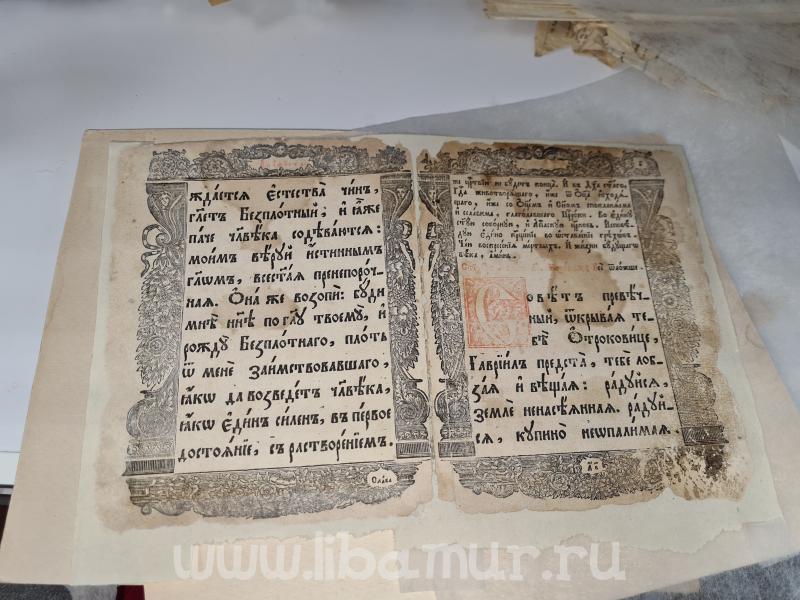 ждается естества чинъ,
гласъ Безплотный, и яже
паче чл҃вѣка содеваются:
моимъ вѣруй истиннымъ
гл҃омъ, всест҃ая пренепороч-
ная. Она же возопи: буди
мнѣ нн҃ѣ по гл҃у твоемꙋ, и
рождꙋ Безплотнаго, плоть
ѿ мене Заимствовавшаго,
ꙗкѡ да возведетъ чл҃вѣка,
ꙗкѡ единъ силенъ, въ первое
достоѧнїе, съ растворенїемъ.
Слава
не будетъ конца. И въ Дх҃а ст҃аго,
Гдⷭ҇а животворѧщаго, иже ѿ Оц҃а исходѧ-
щаго, иже со Оц҃емъ и Сн҃омъ споклонѧема
и сславима, глаголавшаго Пр҃оки. Во едину
ст҃ую соборную, и Ап҃лскую цр҃ковь. Исповѣ-
дую Едино кр҃щенїе во ѡставленїе грѣхѡвъ.
Чаю воскресенїѧ мертвыхъ. И жизни будущагѡ
вѣка, аминь.
Совѣтъ превѣч-
ный, ѿкрываѧ те-
бѣ Отроковице,
Гаврїилъ предста, тебе лоб-
заѧ и вѣщаѧ: радꙋйсѧ,
Земле ненасѣѧннаѧ. радꙋй-
сѧ, кꙋпино неѡпалимаѧ.
www.libamur.ru